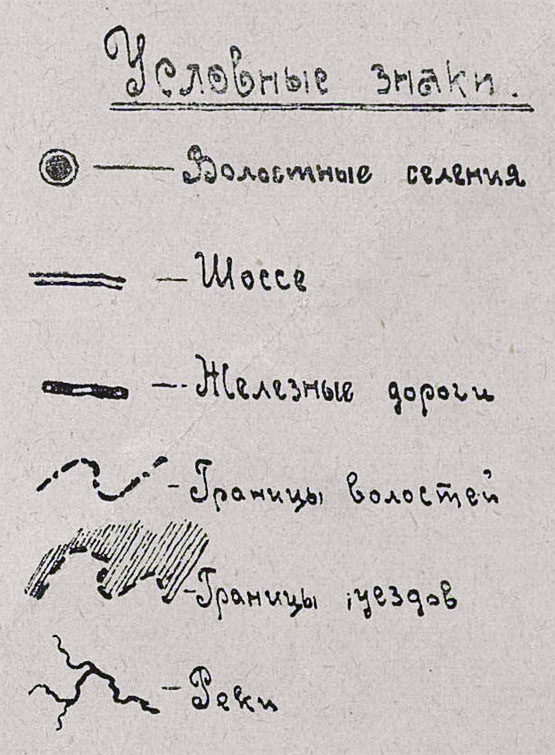 Условные знаки.
Волостные селения
Шоссе
Железные дороги
Границы волостей
Границы уездов
Реки